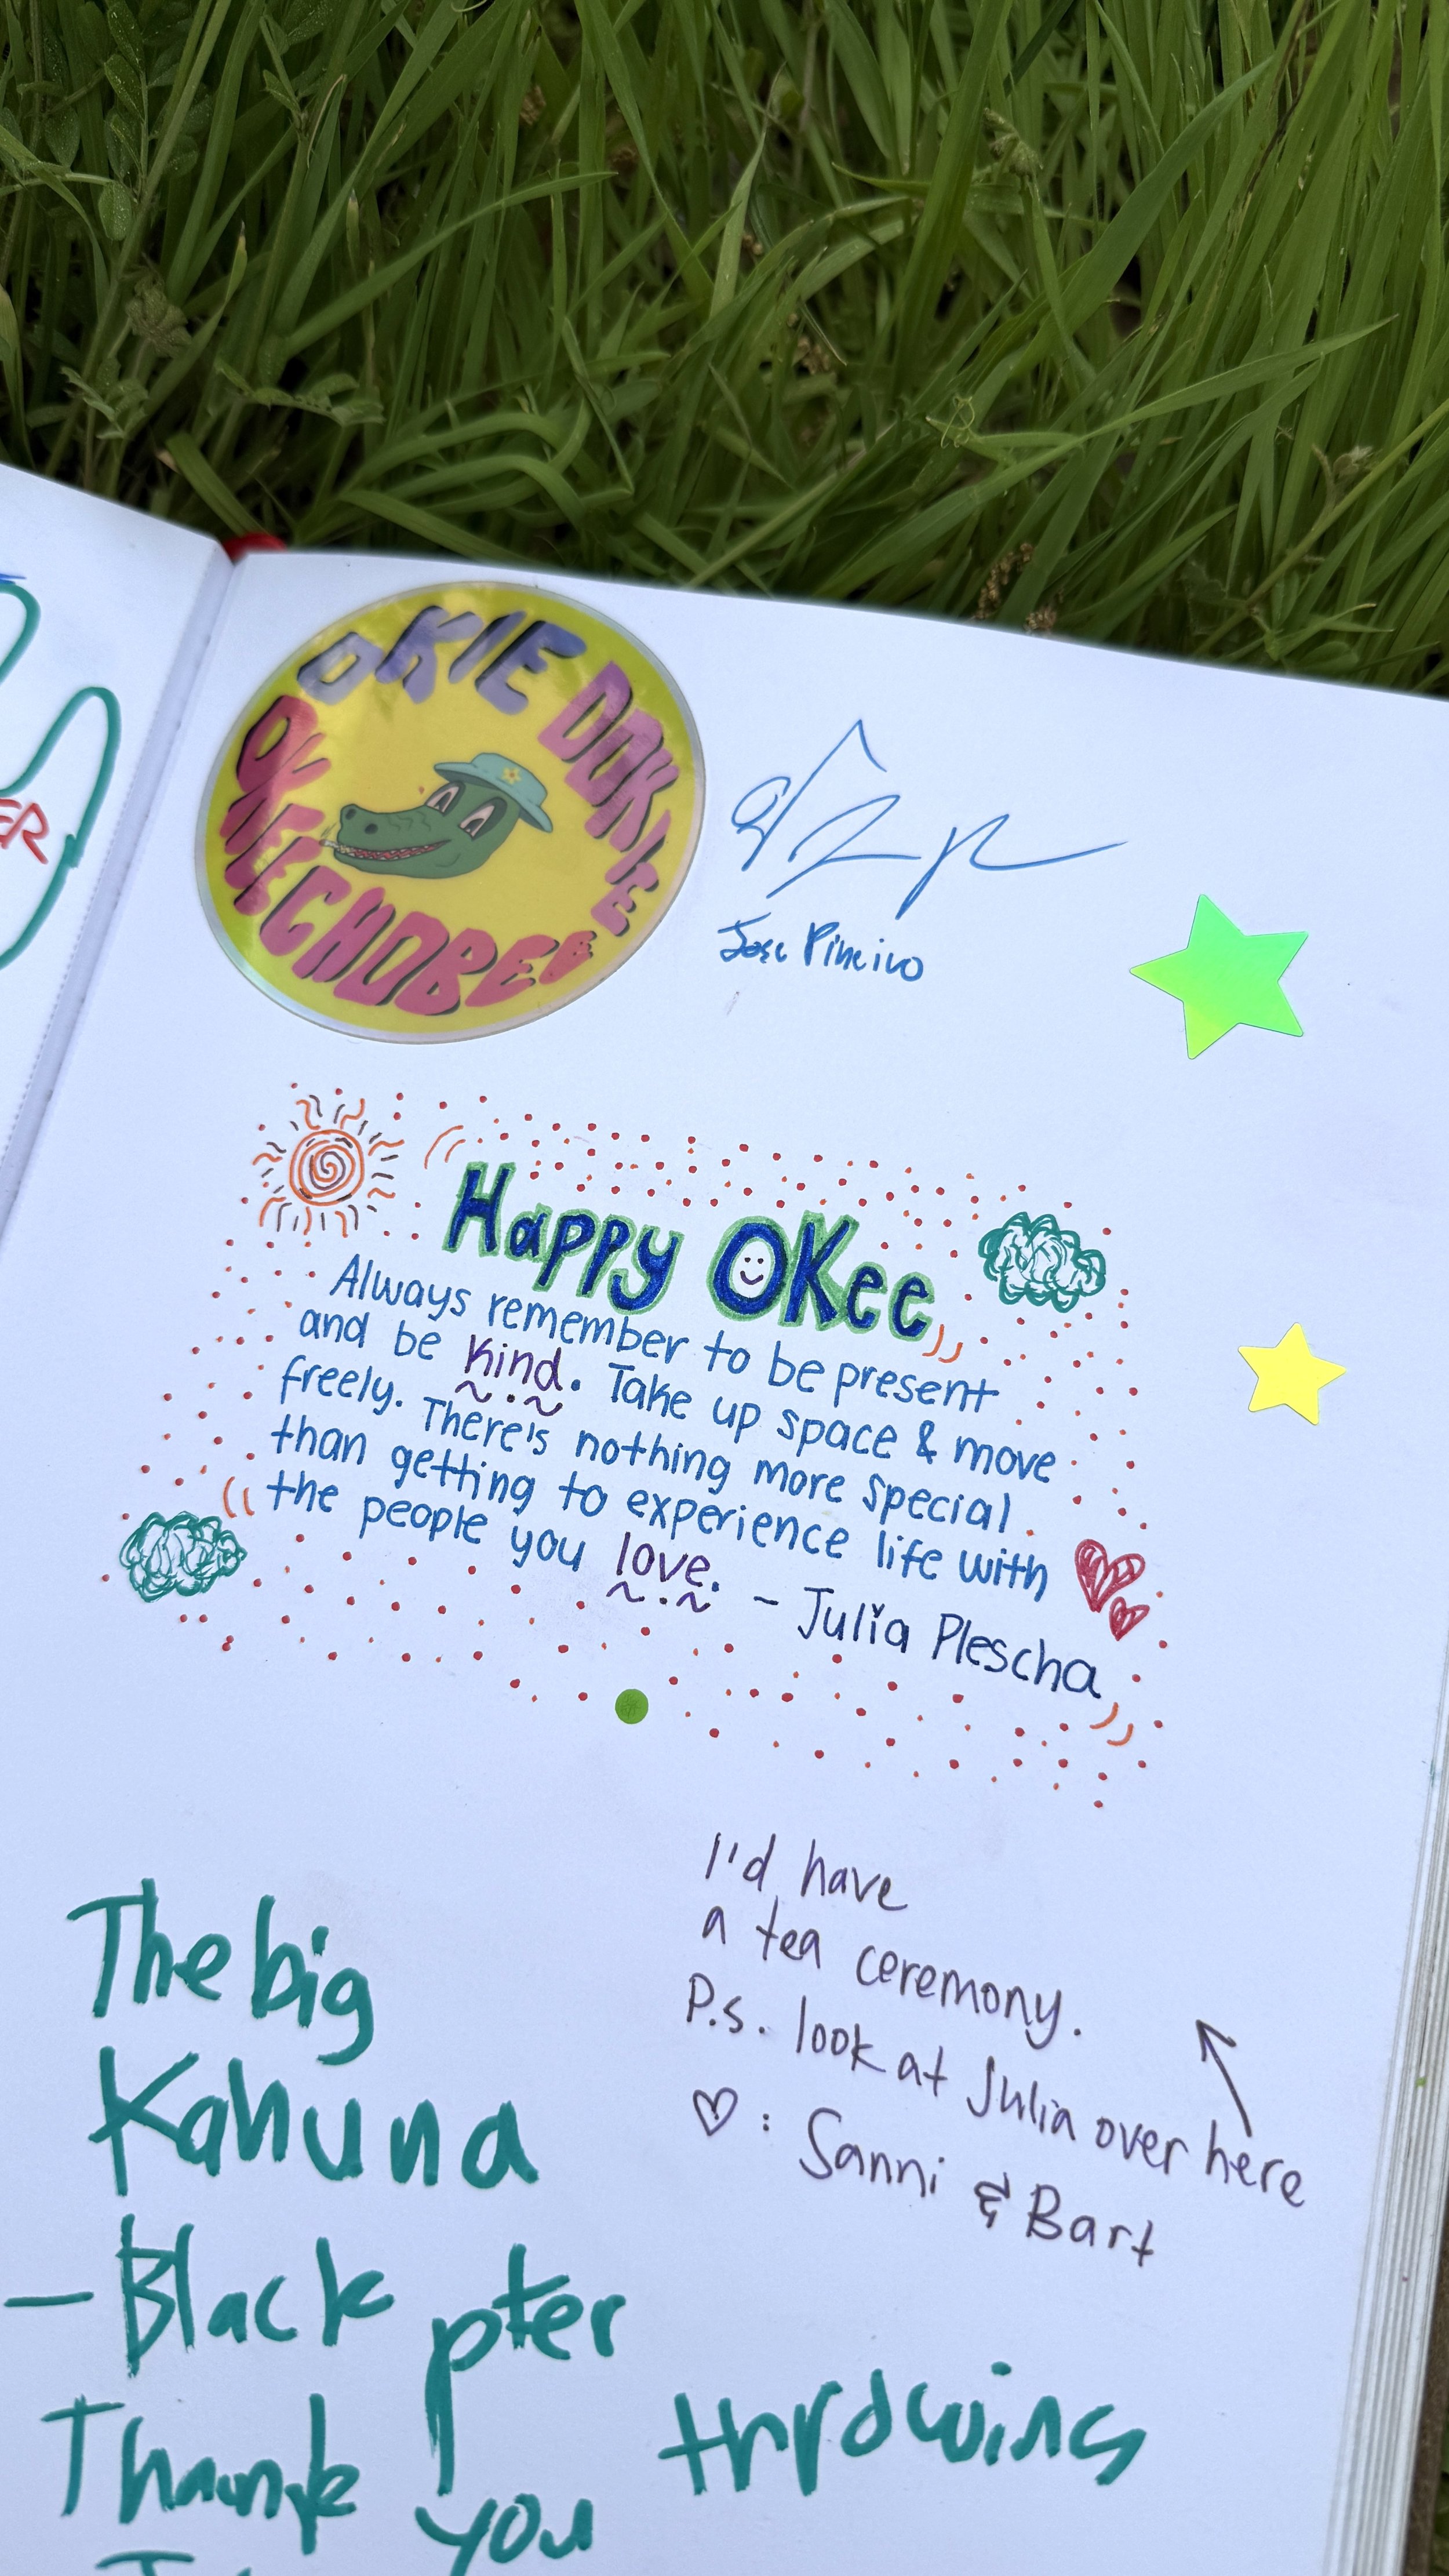 OKIE DOKIE
OKEECHOBEE
ER
Jose Pineiro
Happy OKee
Always remember to be present
and be kind. Take up space & move
freely. There's nothing more special
than getting to experience life with
the people you love. - Julia Plescha
I'd have
a tea ceremony.
P.s. look at Julia over here
♡: Sanni & Bart
The big
Kahuna
- Black pter
Thank you